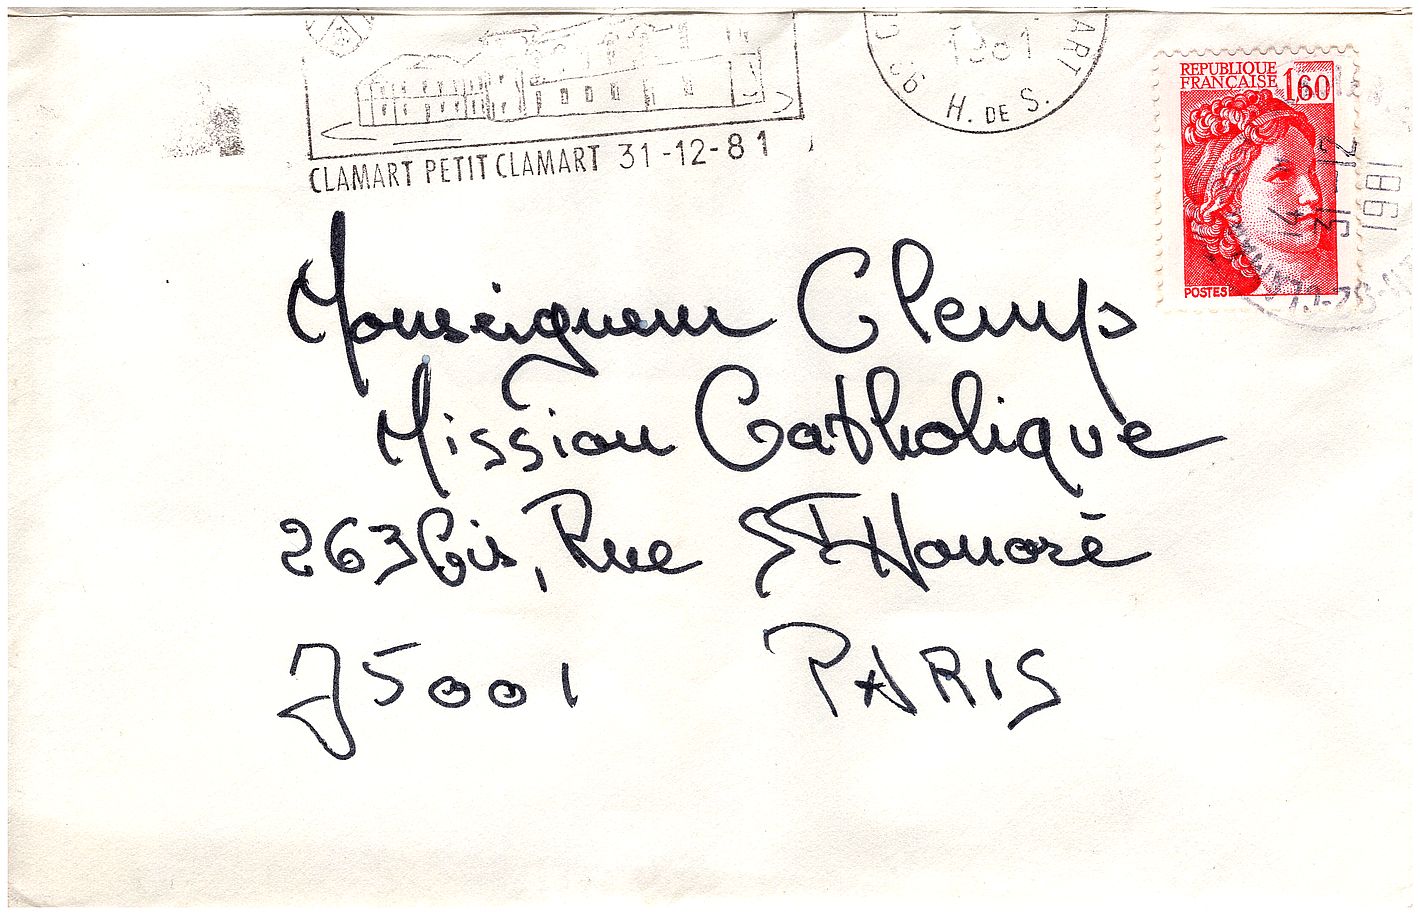 1981
H. DE S.
CLAMART PETIT CLAMART 31-12-81
REPUBLIQUE
FRANÇAISE 1,60
POSTES
14
31-12
1981
Monseigneur
Mission Catholique
263 bis, Rue St Honoré
75001 PARIS